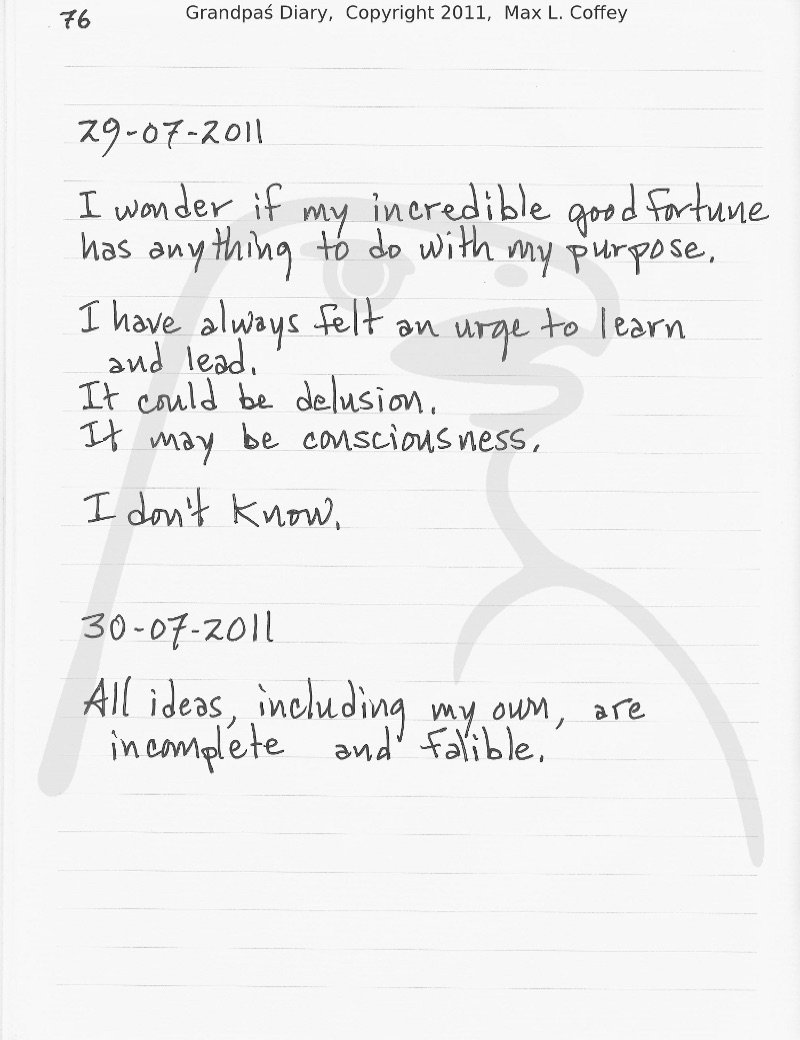 76
Grandpaś Diary, Copyright 2011, Max L. Coffey
29-07-2011
I wonder if my incredible good fortune
has anything to do with my purpose.
I have always felt an urge to learn
and lead.
It could be delusion.
It may be consciousness.
I don't know.
30-07-2011
All ideas, including my own, are
incomplete and falible.